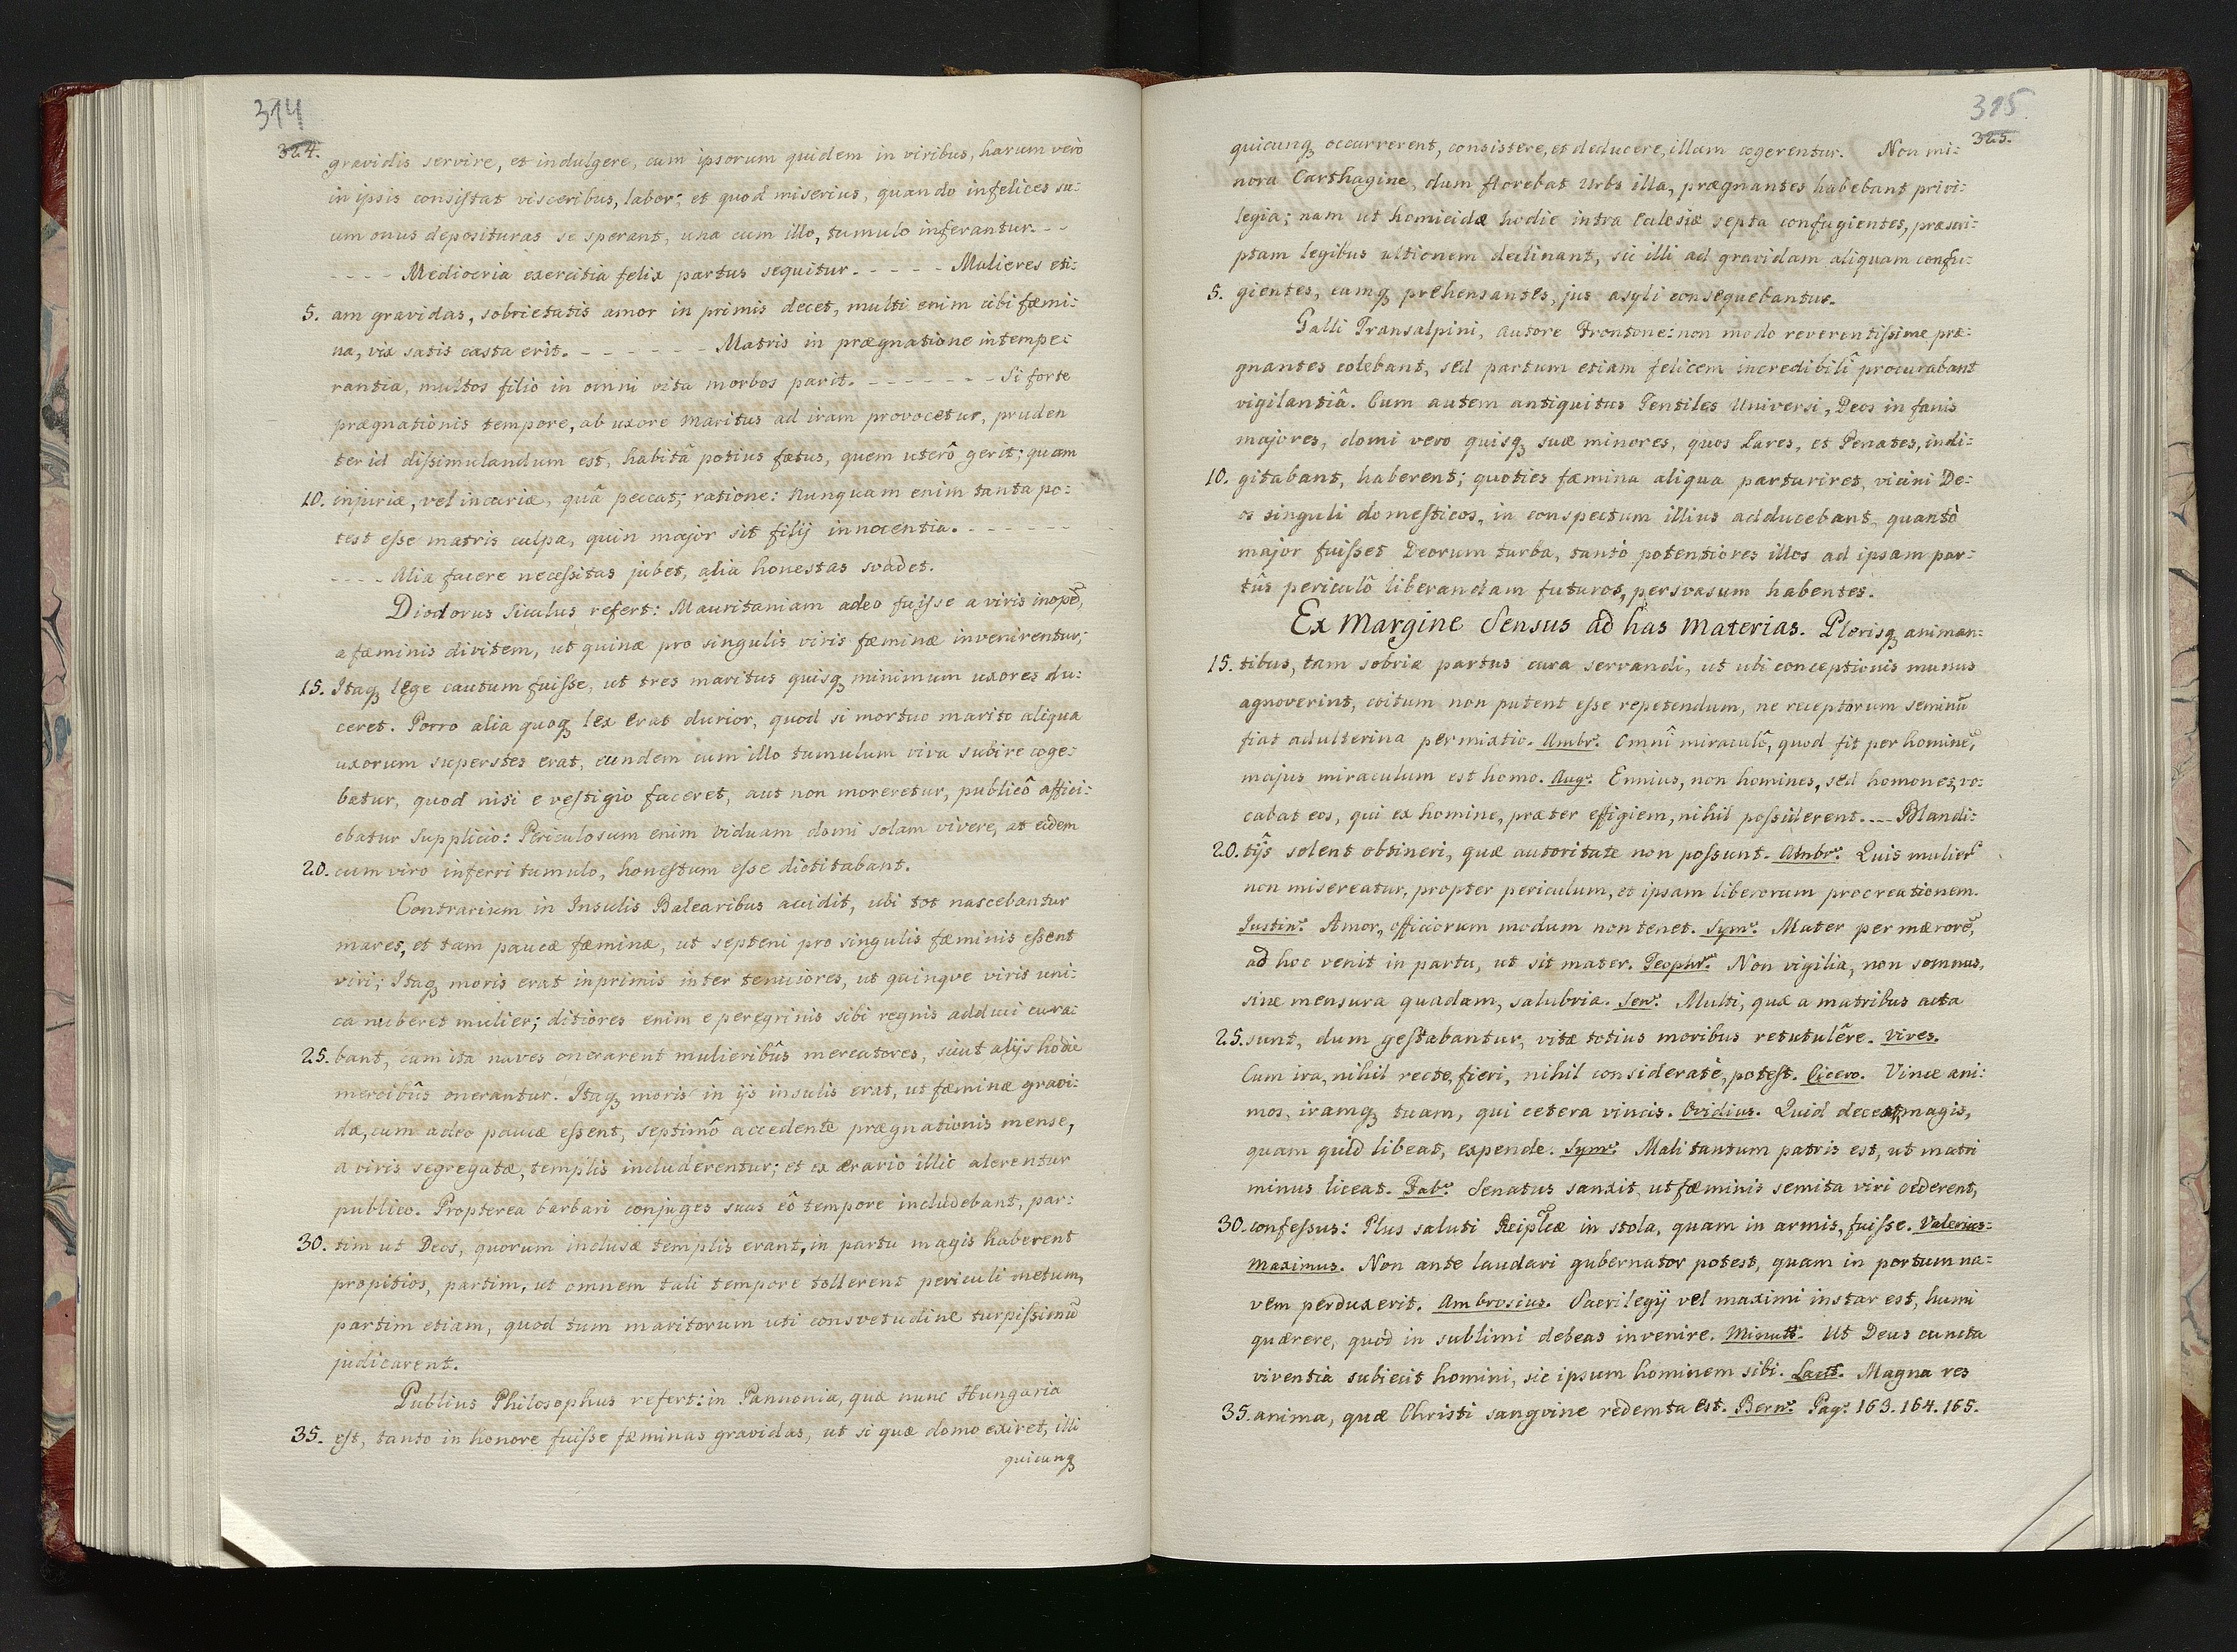 314
324.
gravidis servire, et indulgere, cum ipsorum quidem in viribus, harum verò
in ipsis consistat visceribus, labor; et quod miserius, quando infelices su:
um onus deposituras se sperant, una cum illo, tumulo inferantur. - -
- - - - Mediocria exercitia felix partus sequitur. - - - - - Mulieres eti:
5. am gravidas, sobrietatis amor in primis decet, multi enim cibi fæmi:
na, vix satis casta erit. - - - - - - - Matris in prægnatione intempe:
rantia, multos filio in omni vita morbos parit. - - - - - - - Si forte
prægnationis tempore, ab uxore maritus ad iram provocetur, pruden
ter id dissimulandum est, habitâ potius fœtus, quem uterô gerit; quam
10. injuriæ, vel incuriæ, quâ peccat; ratione: Nunquam enim tanta po:
test esse matris culpa, quin major sit filij innocentia. - - - - - - -
- - - - Alia facere necessitas jubet, alia honestas svadet.
Diodorus Siculus refert: Mauritaniam adeo fuisse a viris inopē,
a fæminis divitem, ut quinæ pro singulis viris fæminæ invenirentur;
15. Itaq₃ lege cautum fuisse, ut tres maritus quisq₃ minimum uxores du:
ceret. Porro alia quoq₃ lex erat durior, quod si mortuo marito aliqua
uxorum superstes erat, eundem cum illo tumulum viva subire coge:
batur, quod nisi e vestigio faceret, aut non moreretur, publicô affici:
ebatur supplicio: Periculosum enim viduam domi solam vivere, at eidem
20. cum viro inferri tumulo, honestum esse dictitabant.
Contrarium in Insulis Balearibus accidit, ubi tot nascebantur
mares, et tam paucæ fæminæ, ut septeni pro singulis fæminis essent
viri; Itaq₃ moris erat inprimis inter tenuiores, ut quinqve viris uni:
ca nuberet mulier; ditiores enim e peregrinis sibi regnis adduci cura:
25. bant, cum ita naves onerarent mulieribûs mercatores, sicut alijs hodie
mercibûs onerantur. Itaq₃ moris in ijs insulis erat, ut fæminæ gravi:
dæ, cum adeo paucæ essent, septimô accedente prægnationis mense,
a viris segregatæ, templis includerentur; et ex ærario illic alerentur
publico. Propterea barbari conjuges suas eô tempore includebant, par:
30. tim ut Deos, quorum inclusæ templis erant, in partu magis haberent
propitios, partim, ut omnem tali tempore tollerent periculi metum,
partim etiam, quod tum maritorum uti consvetudine turpissimū
judicarent.
Publius Philosophus refert: in Pannonia, quæ nunc Hungaria
35. est, tanto in honore fuisse fæminas gravidas, ut si quæ domo exiret, illi
quicunq₃
315.
325.
quicunq₃ occurrerent, consistere, et deducere, illam cogerentur. Non mi:
nora Carthagine, dum florebat Urbs illa, prægnantes habebant privi:
legia; nam ut homicidæ hodie intra Eclesiæ septa confugientes, præscri:
ptam legibus ultionem declinant, sic illi ad gravidam aliquam confu:
5. gientes, eamq₃ prehensantes, jus asyli consequebantur.
Galli Transalpini, autore Frontone: non modo reverentissime præ:
gnantes colebant, sed partum etiam felicem incredibilî procurabant
vigilantiâ. Cum autem antiquitus Gentiles Universi, Deos in fanis
majores, domi vero quisq₃ suæ minores, quos Lares, et Penates, indi:
10. gitabant, haberent; quoties fæmina aliqua parturiret, vicini De:
os singuli domesticos, in conspectum illius adducebant, quantò
major fuisset Deorum turba, tantò potentiores illos ad ipsam par:
tûs periculô liberandam futuros, persvasum habentes.
Ex Margine Sensus ad has Materias. Plerisq₃ animan:
15. tibus, tam sobriæ partus cura servandi, ut ubi conceptionis munus
agnoverint, coitum non putent esse repetendum, ne receptorum seminū
fiat adulterina permixtio. Ambr: Omnî miraculô, quod fit per hominē,
majus miraculum est homo. Aug: Ennius, non homines, sed homones, vo:
cabat eos, qui ex homine, præter effigiem, nihil possiderent. ---- Blandi:
20. tijs solent obtineri, quæ autoritate non possunt. Ambr: Quis mulier
non misereatur, propter periculum, et ipsam liberorum procreationem.
Justin: Amor, officiorum modum non tenet. Sym: Mater per mærorē,
ad hoc venit in partu, ut sit mater. Teophr: Non vigilia, non somnus,
sine mensura quadam, salubria. Sen: Multi, quæ a matribus acta
25. sunt, dum gestabantur, vitæ totius moribus retutulêre. Vives.
Cum ira, nihil recte, fieri, nihil consideratè, potest. Cicero. Vince ani:
mos, iramq₃ tuam, qui cetera vincis. Ovidius. Quid deceat magis,
quam quid libeat, expende. Sym: Mali tantum patris est, ut matri
minus liceat. Fab: Senatus sanxit, ut fæminis semita viri cederent,
30. confessus: Plus saluti Reiplcæ in stola, quam in armis, fuisse. Valerius
Maximus. Non ante laudari gubernator potest, quam in portum na:
vem perduxerit. Ambrosius. Sacrilegij vel maximi instar est, humi
quærere, quod in sublimi debeas invenire. Minutt: Ut Deus cuncta
viventia subiecit homini, sic ipsum hominem sibi. Lact. Magna res
35. anima, quæ Christi sangvine redemta est. Bern: Pag: 163. 164. 165.